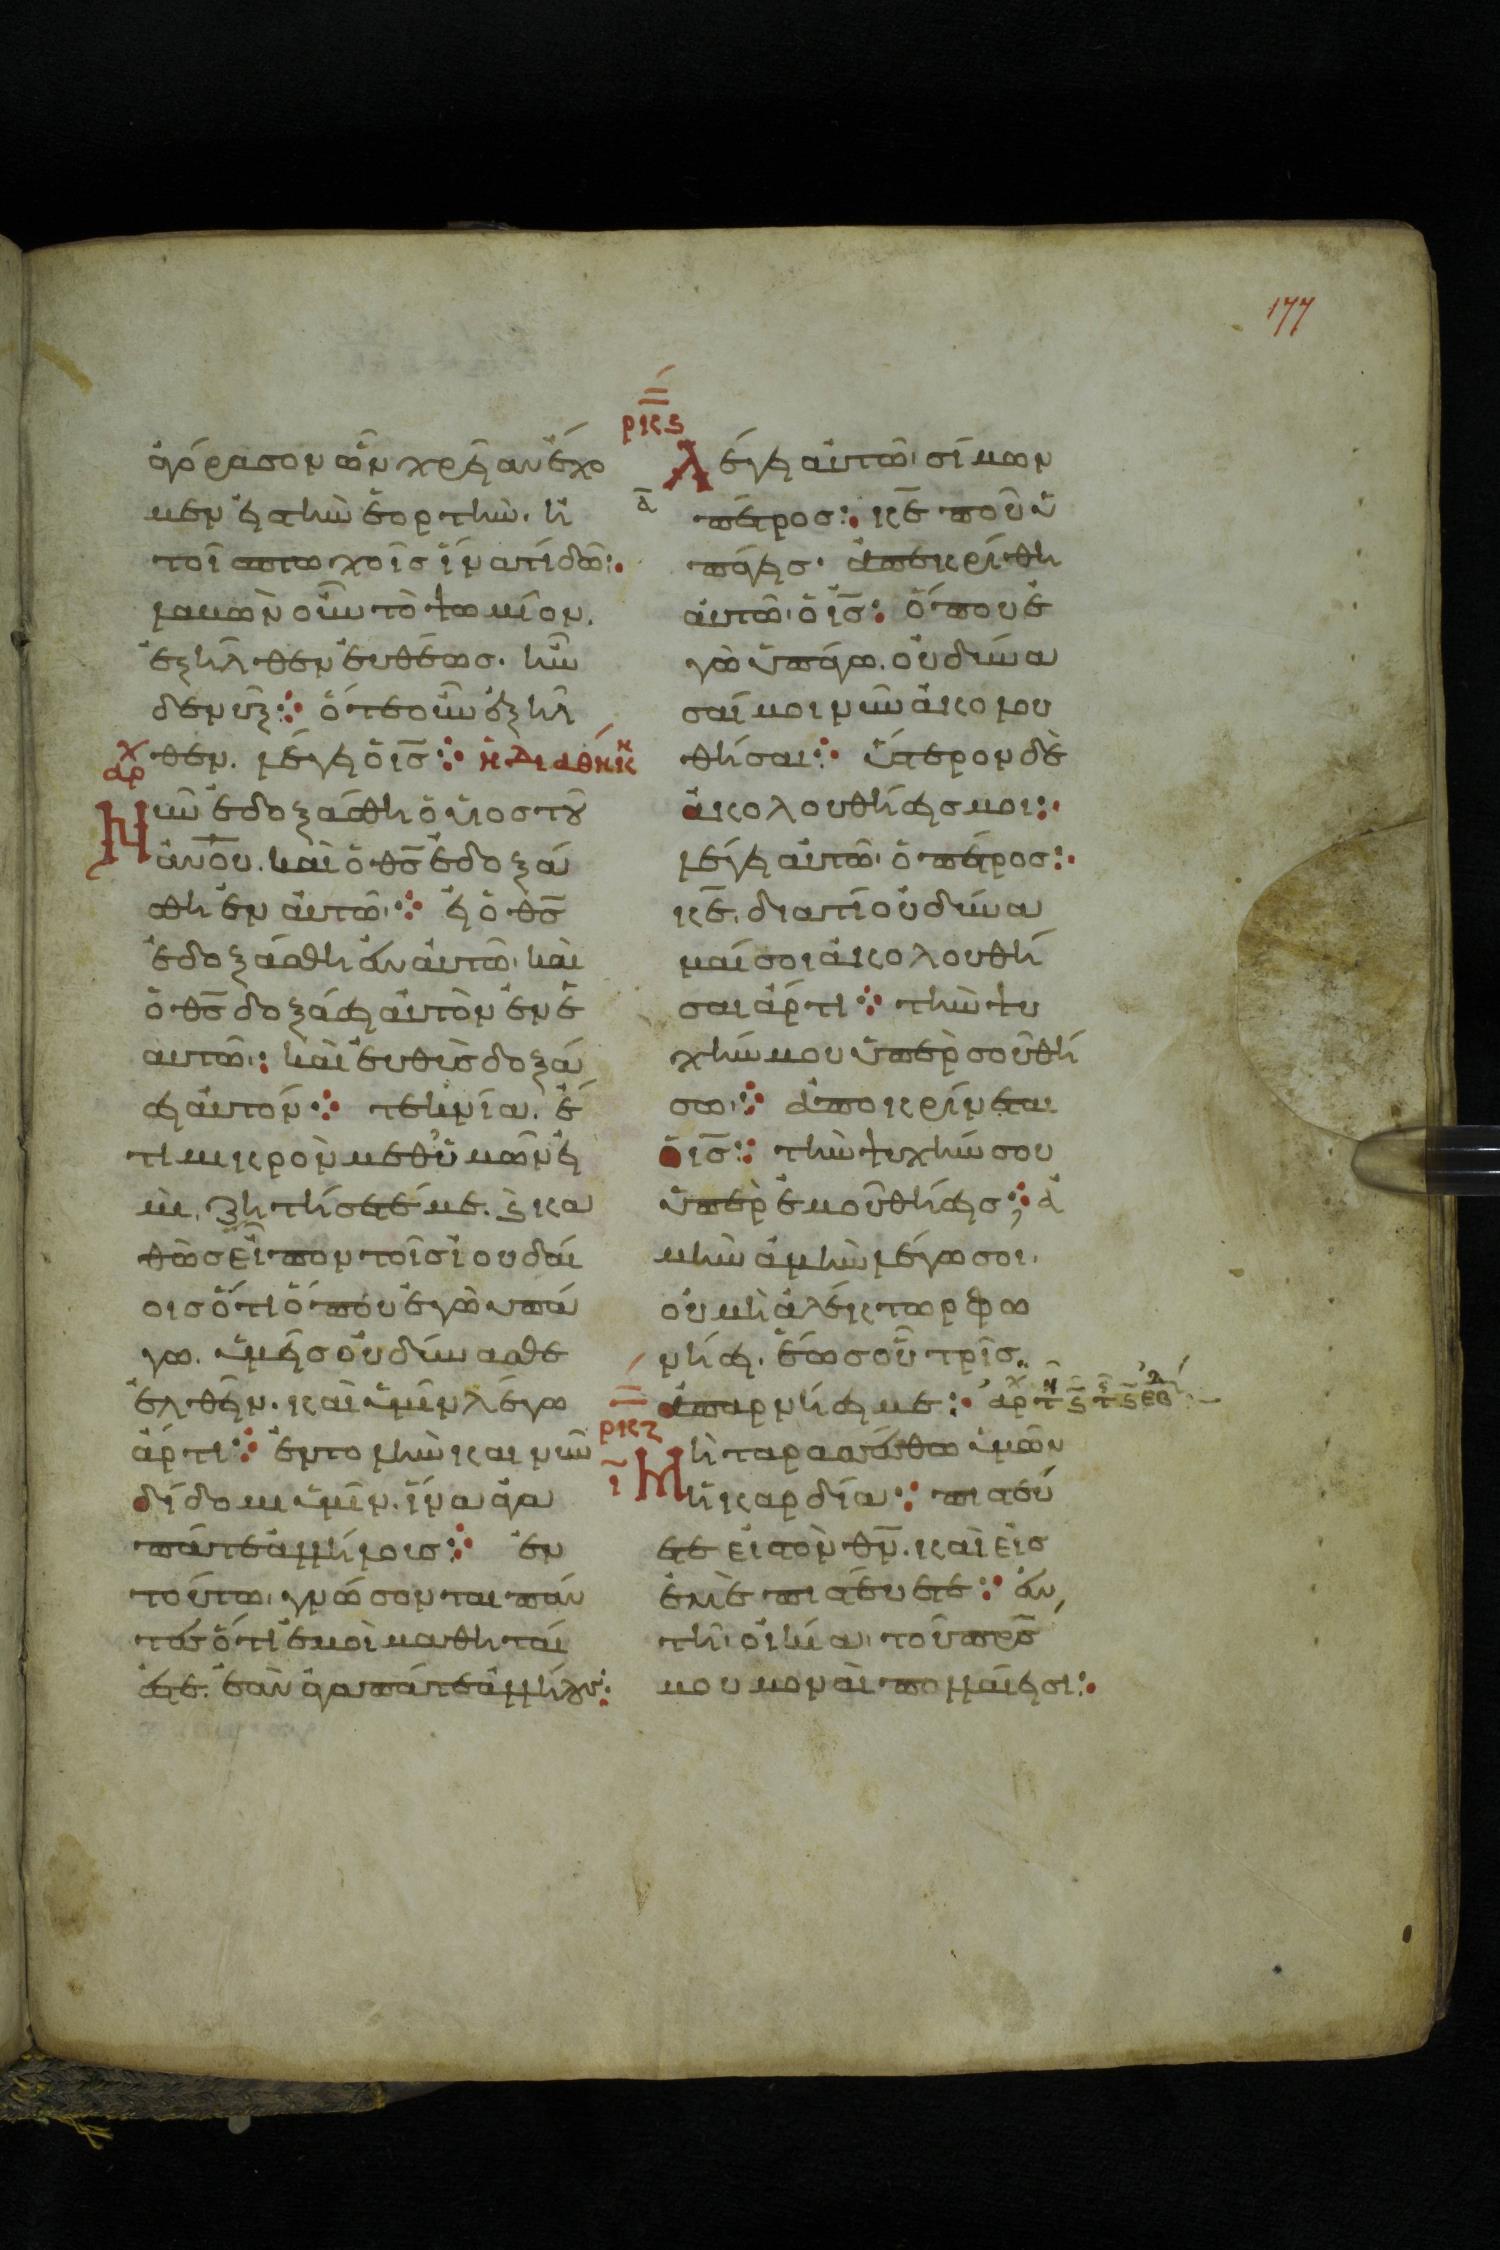 177
ἀγόρασον ὧν χρείαν ἔχο
μεν εἰς τὴν ἑορτήν· ἢ
τοῖ πτωχοῖς ἵνα τί δῶ:
λαβὼν οὖν τὸ ψωμίον.
ἐξῆλθεν εὐθέως· ἦν
δὲ νύξ: ὅτε οὖν ἐξῆλ
θεν. λέγει ὁ ις: ἡ διαθήκη
αρχ
Νῦν ἐδοξάσθη ὁ υἱὸς τοῦ
ἀνου. καὶ ὁ θς ἐδοξά
σθη ἐν αὐτῶ: εἰ ὁ θς
ἐδοξάσθη ἐν αὐτῶ, καὶ
ὁ θς δοξάσει αὐτὸν ἐν ἑ
αυτῶ: καὶ εὐθὺς δοξά
σει αὐτόν: τεκνία. ἔ
τι μικρὸν μεθ' ὑμῶν εἰ
μι. ζητήσετέ με. ϗ κα
θὼς εἶπον τοῖς ἰουδαί
οις ὅτι ὅπου ἐγὼ υπά
γω. ὑμεῖς οὐ δύνασθε
ἐλθεῖν. καὶ ὑμῖν λέγω
ἄρτι: ἐντολὴν καινὴν
δίδωμι ὑμῖν. ἵνα ἀγα
πάτε ἀλλήλοις: ἐν
τούτω, γνώσονται πάν
τες ὅτι ἐμοὶ μαθηταί
ἐστε. ἐὰν ἀγαπάτε ἀλλήλους:
ρκς
Λέγει αὐτῶ, σίμων
δ
πέτρος: κε ποῦ ὑ
πάγεις· ἀπεκρίθη
αὐτῶ, ὁ ις: ὅπου ἐ
γὼ ὑπάγω. οὐ δύνα
σαί μοι νῦν ἀκολου
θῆσαι: ὕστερον δὲ
ἀκολουθήσεις μοι:
λέγει αὐτῶ, ὁ πέτρος:
κε. διατί οὐ δύνα
μαί σοι ἀκολουθῆ
σαι ἄρτι: τὴν ψυ
χήν μου ὑπὲρ σοῦ θή
σω: ἀποκρίνεται
ὁ ις: τὴν ψυχήν σου
ὑπὲρ ἐμοῦ θήσεις; ἀ
μὴν ἀμὴν λέγω σοι.
οὐ μὴ ἀλέκτωρ φω
νήσει. ἕως οὗ τρὶς
ἀπαρνήσει με:
ρκζ
ι
Μὴ ταρασσέσθω ὑμῶν
ἡ καρδία: πιστεύ
ετε εἰς τὸν θν. καὶ εἰς
ἐμὲ πιστεύετε: ἐν
τῆ οἰκία, τοῦ πρς
μου μοναὶ πολλαί εἰσι: